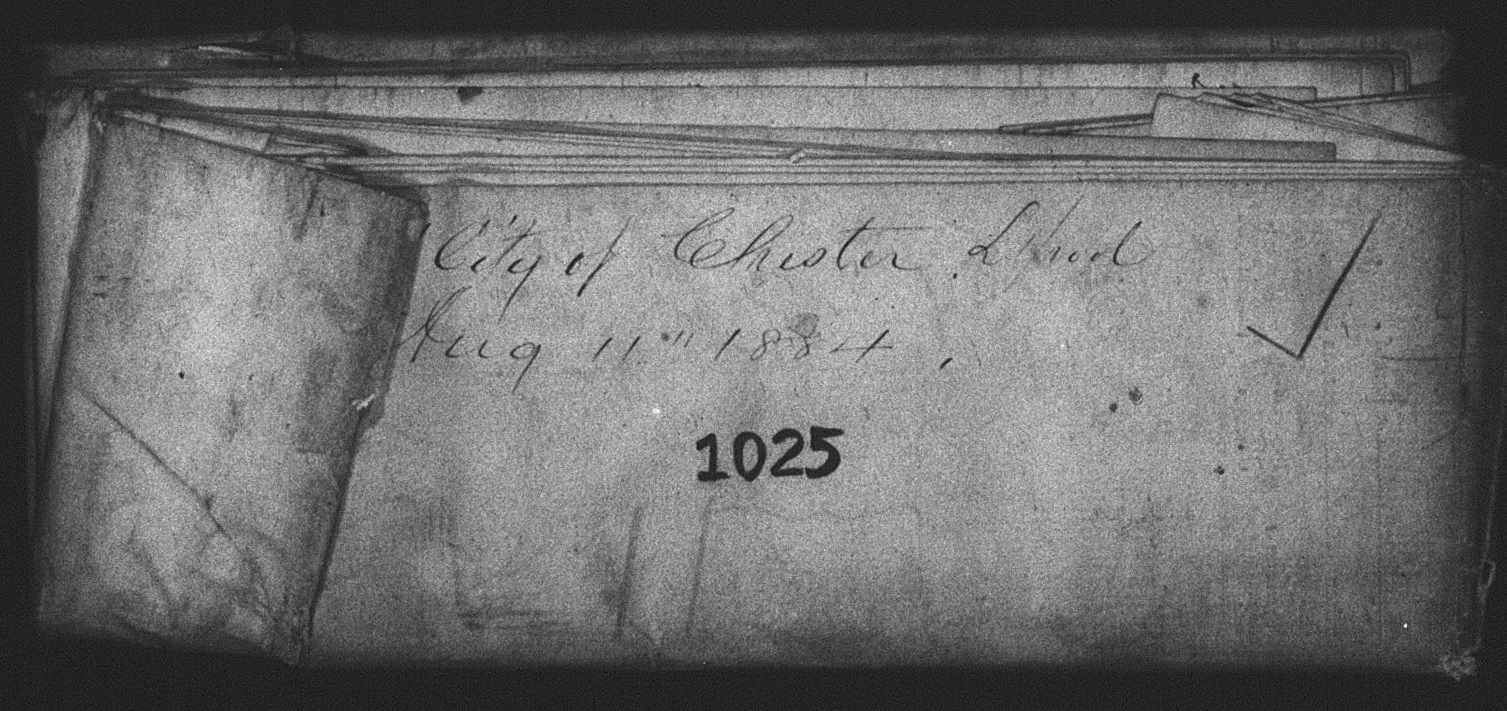 "City of Chester" L'pool
Aug 11" 1884,
1025